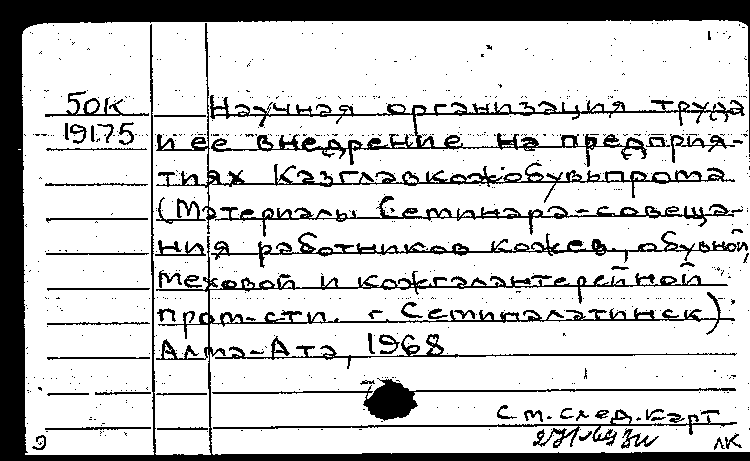 50К Научная организация труда
19175 и ее внедрение на предприя-
тиях Казглавкожобувьпрома
(Материалы Семинара-совеща-
ния работников кожев., обувной,
меховой и кожгалантерейной
пром-сти. г. Семипалатинск)
Алма-Ата, 1968
См. след. карт.
лк